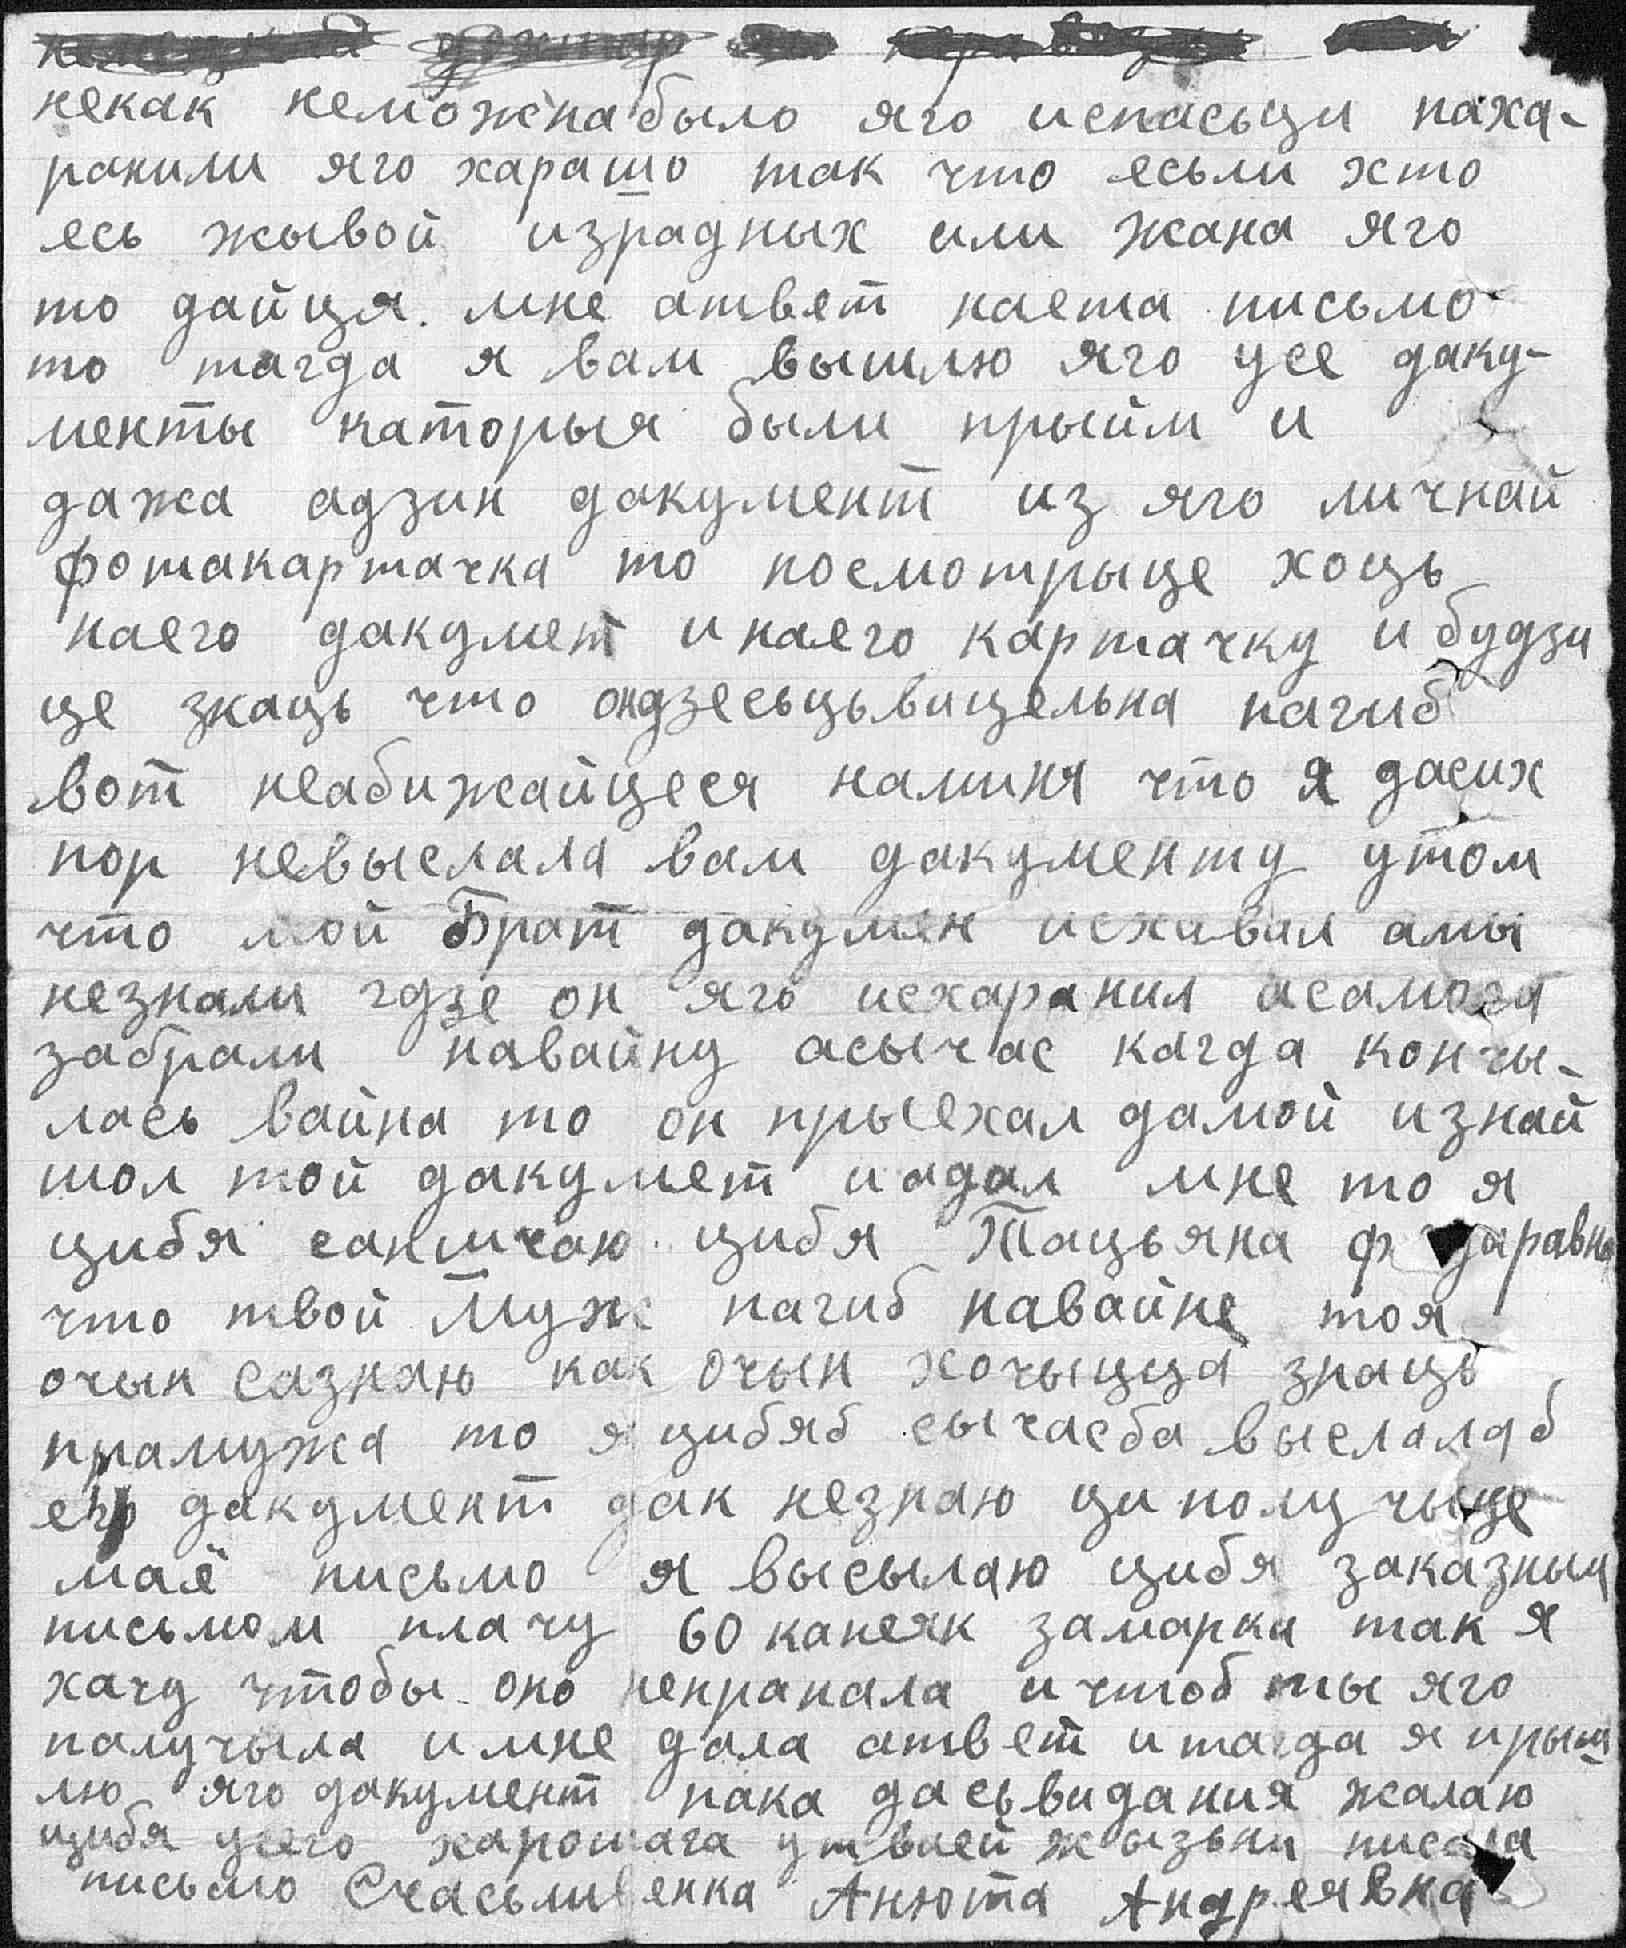 некак неможнабыло яго испасьци паха-
ранили яго харашо так что есьли хто
есь жывой израдных или жана яго
то дайця мне атвет наета письмо
то тагда я вам вышлю яго усе даку-
менты каторыя были прыйм и
дажа адзин дакумент из яго личнай
фотакартачка то посмотрыце хоць
наего дакумет инаяго картачку и будзи
це знаць что ондзесьцьвицельна пагиб
вот неабижайцеся наминя что я дасих
пор невыслала вам дакументу утом
что мой Брат дакумен исхавал амы
незнали гдзе он яго исхаранил асамого
забрали навайну асычас кагда кончы-
лась вайна то он прыехал дамой изнай
шол той дакумет иадал мне то я
цибя цибя Тацьяна
что твой Муж пагиб навайне тоя
очын сазнаю как очын хочыцца знаць
прамужа то я цибяб сычасба выслалаб
дакумент дак незнаю ци получыце
маё письмо я высылаю цибя заказныя
письмом плачу 60 капеяк замарки так я
хачу чтобы оно непрапала ичтоб ты яго
палучыла имне дала атвет итагда я прыш
лю яго дакумент пака дасьвидания жалаю
цибя усего харошага утваей жызьни писала
письмо Счасьливенка Анюта Андреявна